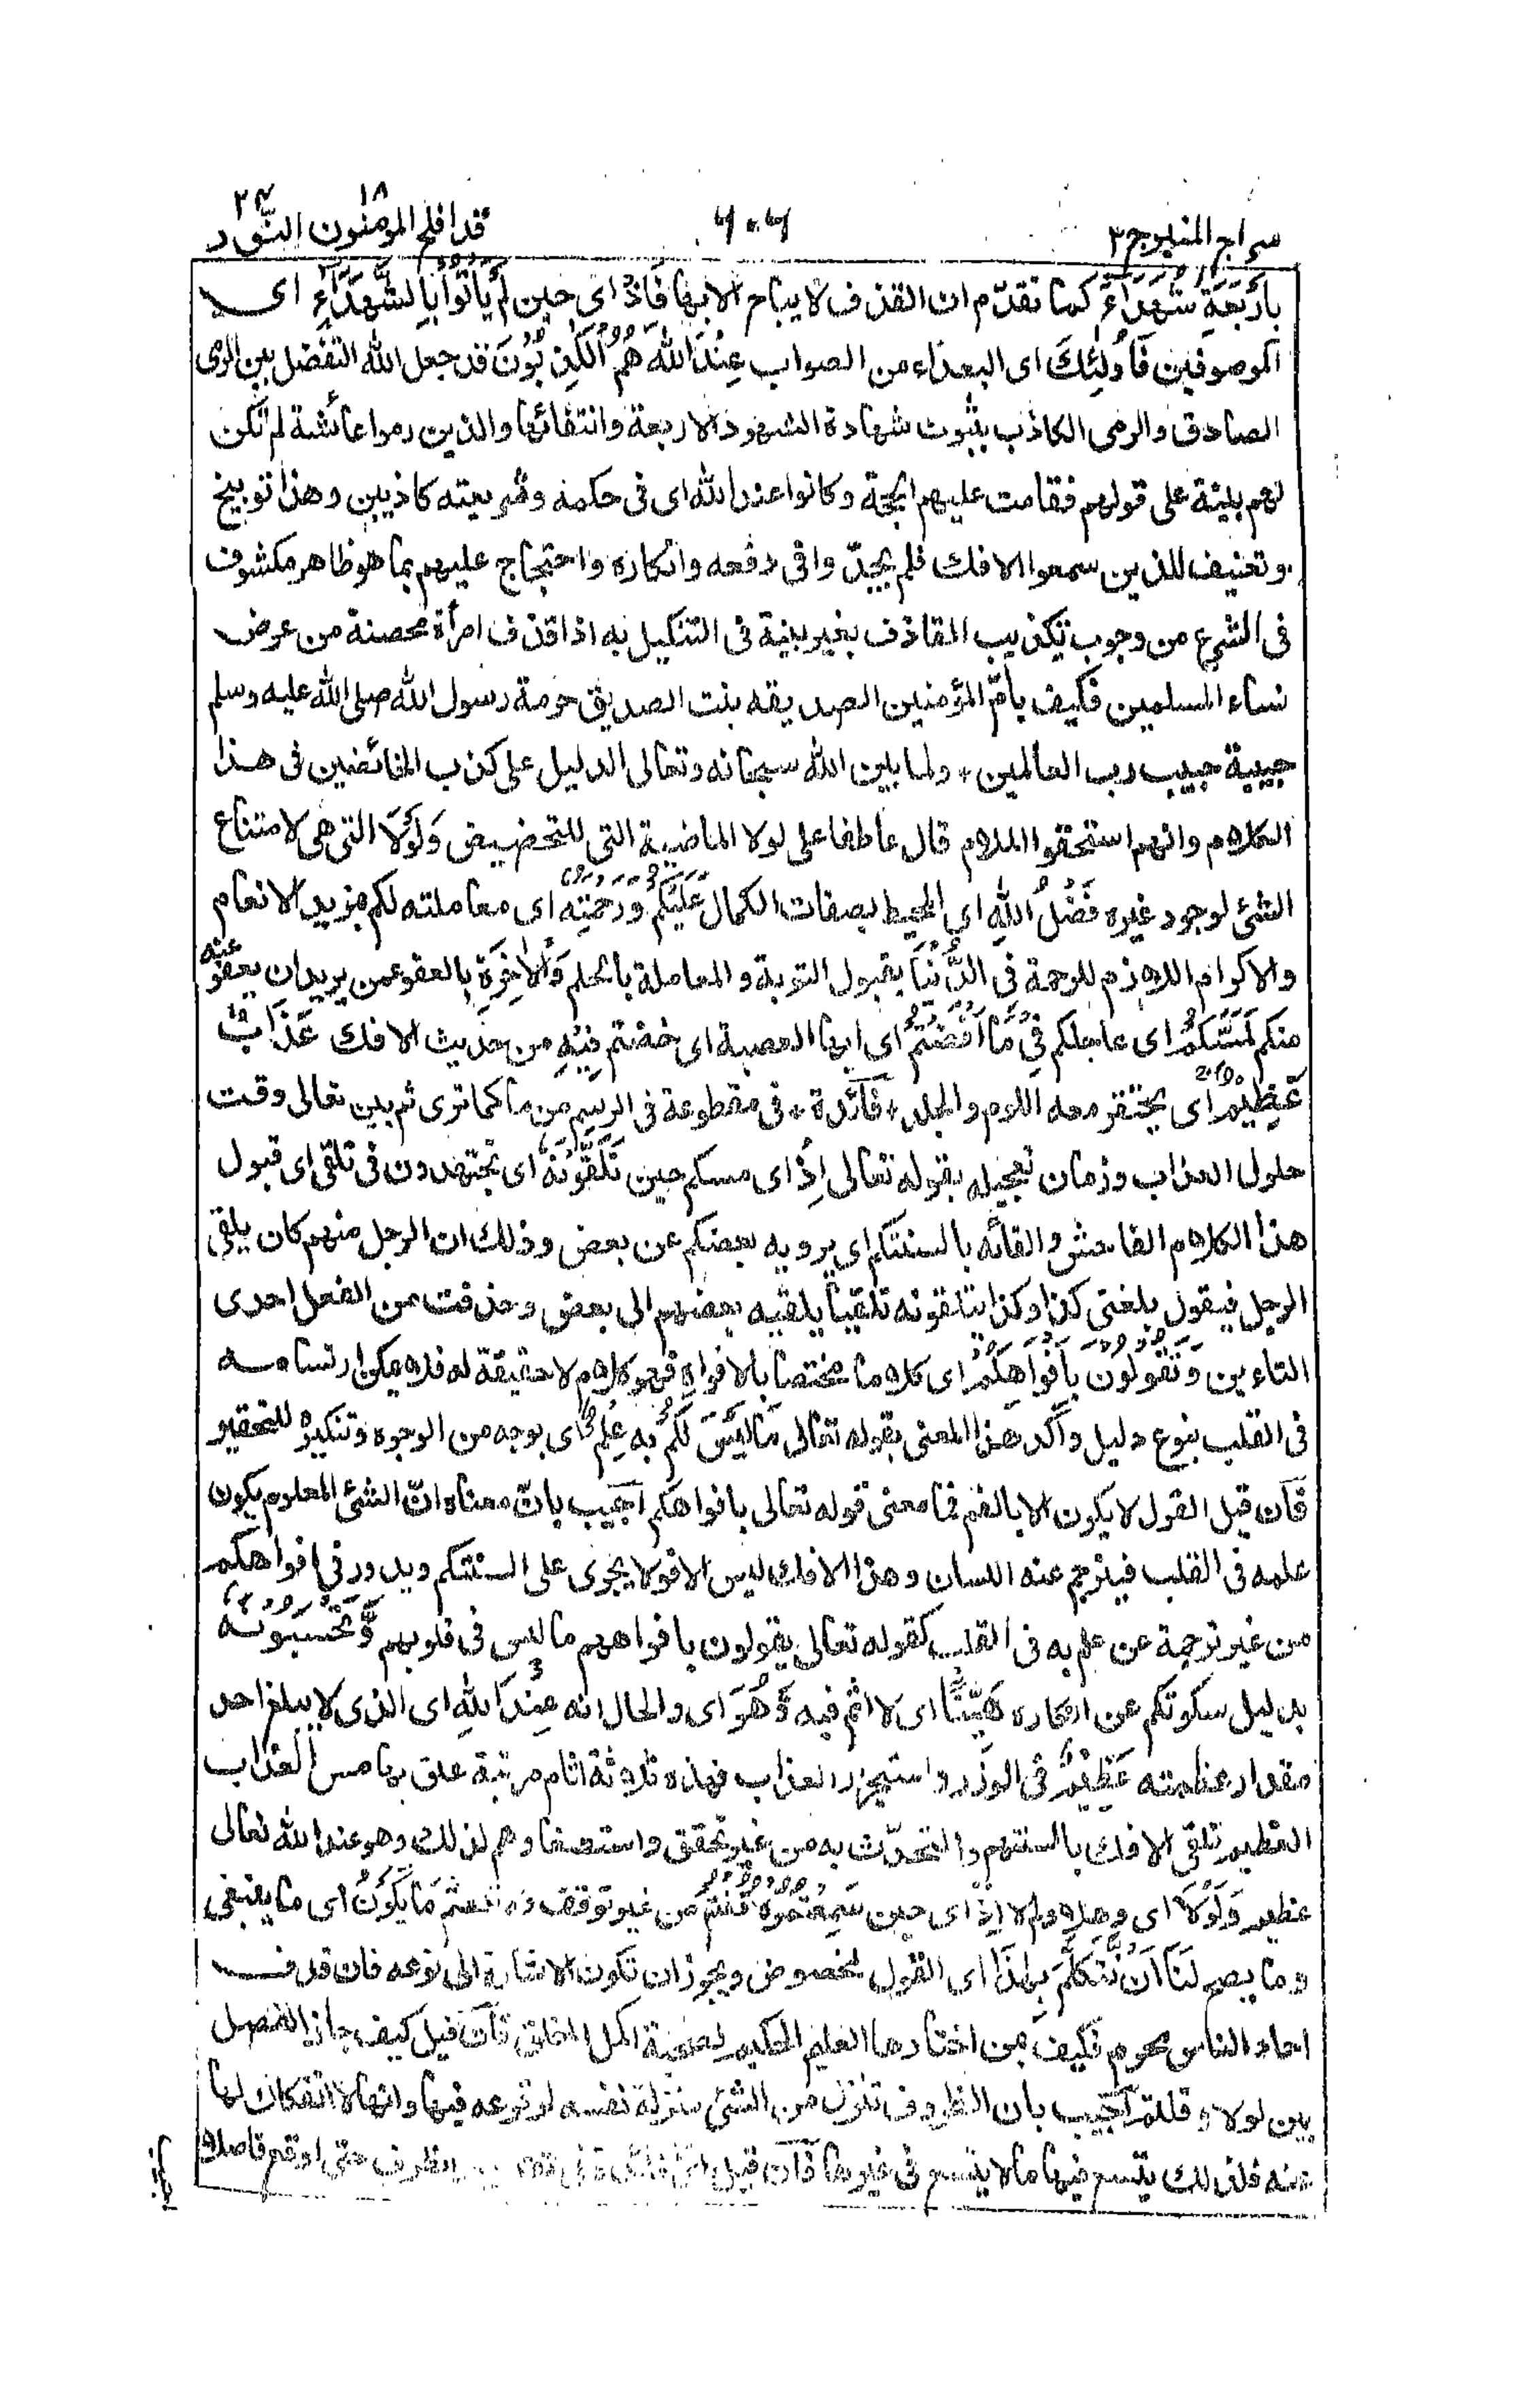 سراج المنير ج ٣
٦٠٦
قد افلح المؤمنون ١٨ النّور ٢٤
بِاَرْبَعَةِ شُهَدَآءَ كما تقدّم ان القذف لا يباح الا بها فَاِذْ اى حين لَمْ يَاْتُوْا بِالشُّهَدَآءِ اى
الموصوفين فَاُولٰٓئِكَ اى البعداء من الصواب عِنْدَ اللّٰهِ هُمُ الْكٰذِبُوْنَ قد جعل الله التفضل بين الرمى
الصادق والرمى الكاذب بثبوت شهادة الشهود الاربعة وانتفائها والذين رموا عائشة لم تكن
لهم بينة على قولهم فقامت عليهم الحجة وكانوا عند الله اى فى حكمه وشريعته كاذبين وهذا توبيخ
وتعنيف للذين سمعوا الافك فلم يجدّوا فى دفعه وانكاره واحتجاج عليهم بما هو ظاهر مكشوف
فى الشرع من وجوب تكذيب القاذف بغير بينة فى التنكيل به اذا قذف امرأة محصنة من عرض
نساء المسلمين فكيف بامّ المؤمنين الصديقه بنت الصديق حرمة رسول الله صلى الله عليه وسلم
حبيبة حبيب رب العالمين ٭ ولما بين الله سبحانه وتعالى الدليل على كذب الخائضين فى هذا
الكلام وانهم استحقوا الملام قال عاطفا على لولا الماضية التى للتحضيض وَلَوْلَا التى هى لامتناع
الشئ لوجود غيره فَضْلُ اللّٰهِ اى المحيط بصفات الكمال عَلَيْكُمْ وَرَحْمَتُهٗ اى معاملته لكم بمزيد الانعام
والاكرام اللازم للرحمة فِى الدُّنْيَا بقبول التوبة والمعاملة بالحلم وَالْاٰخِرَةِ بالعفو عمن يريد ان يعفو عنه
منكم لَمَسَّكُمْ اى عاجلكم فِىْ مَآ اَفَضْتُمْ اى ايها العصبة اى خضتم فِيْهِ من حديث الافك عَذَابٌ
عَظِيْمٌ اى يحتقر معه اللوم والجلد ٭ فآئدة ٭ فى مقطوعة فى الرسم من ما كما ترى ثم بين تعالى وقت
حلول العذاب وزمان تعجيله بقوله تعالى اِذْ اى مسكم حين تَلَقَّوْنَهٗ اى تجتهدون فى تلقى اى قبول
هذا الكلام الفاحش والقائه بالسنتكم اى يرويه بعضكم عن بعض وذلك ان الرجل منهم كان يلقى
الرجل فيقول بلغنى كذا وكذا يتلقونه تلقيا يلقيه بعضهم الى بعض وحذفت من الفعل احدى
التاءين وَتَقُوْلُوْنَ بِاَفْوَاهِكُمْ اى كلاما مختصا بالافواه فهو كلام لا حقيقة له فلا يمكن ارتسامه
فى القلب بنوع دليل وأكد هذا المعنى بقوله تعالى مَا لَيْسَ لَكُمْ بِهٖ عِلْمٌ اى بوجه من الوجوه وتنكيره للتحقير
فآن قيل القول لا يكون الا بالفم فما معنى قوله تعالى بافواهكم اُجيب بانّ معناه انّ الشئ المعلوم يكون
علمه فى القلب فيترجم عنه اللسان وهذا الافك ليس الا قولا يجرى على السنتكم ويدور فى افواهكم
من غير ترجمة عن علم به فى القلب كقوله تعالى يقولون بافواههم ما ليس فى قلوبهم وَّتَحْسَبُوْنَهٗ
بدليل سكوتكم عن انكاره هَيِّنًا اى لا اثم فيه وَّهُوَ اى والحال انه عِنْدَ اللّٰهِ اى الذى لا يبلغ احد
مقدار عظمته عَظِيْمٌ فى الوزر واستجرار العذاب فهذه ثلاثة اثام مرتبة علق بها مس العذاب
العظيم تلقى الافك بالسنتهم والتحدّث به من غير تحقق واستصغارهم لذلك وهو عند الله تعالى
عظيم وَلَوْلَآ اى وهلا ولم لا اِذْ اى حين سَمِعْتُمُوْهُ قُلْتُمْ من غير توقف مَا يَكُوْنُ اى ما ينبغى
وما يصح لَنَآ اَنْ نَّتَكَلَّمَ بِهٰذَا اى القول المخصوص ويجوز ان تكون الاشارة الى نوعه فان قذف
احاد الناس محرم فكيف بمن اختارها العليم الحكيم لصحبة اكمل الخلق فآن قيل كيف جاز الفصل
بين لولا وقلتم اُجيب بان الظروف تنزل من الشئ منزلة نفسه لوقوعه فيها وانها لا انفكاك لها
عنه فلذلك يتسع فيها ما لا يتسع فى غيرها فآن قيل اىّ فائدة فى تقديم الظرف حتى اوقع فاصلا